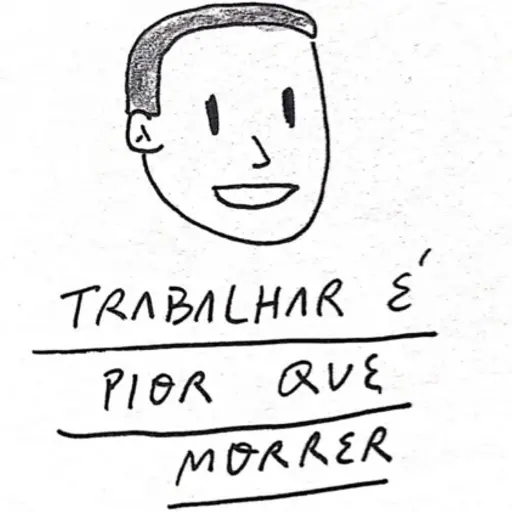 TRABALHAR É
PIOR QUE
MORRER